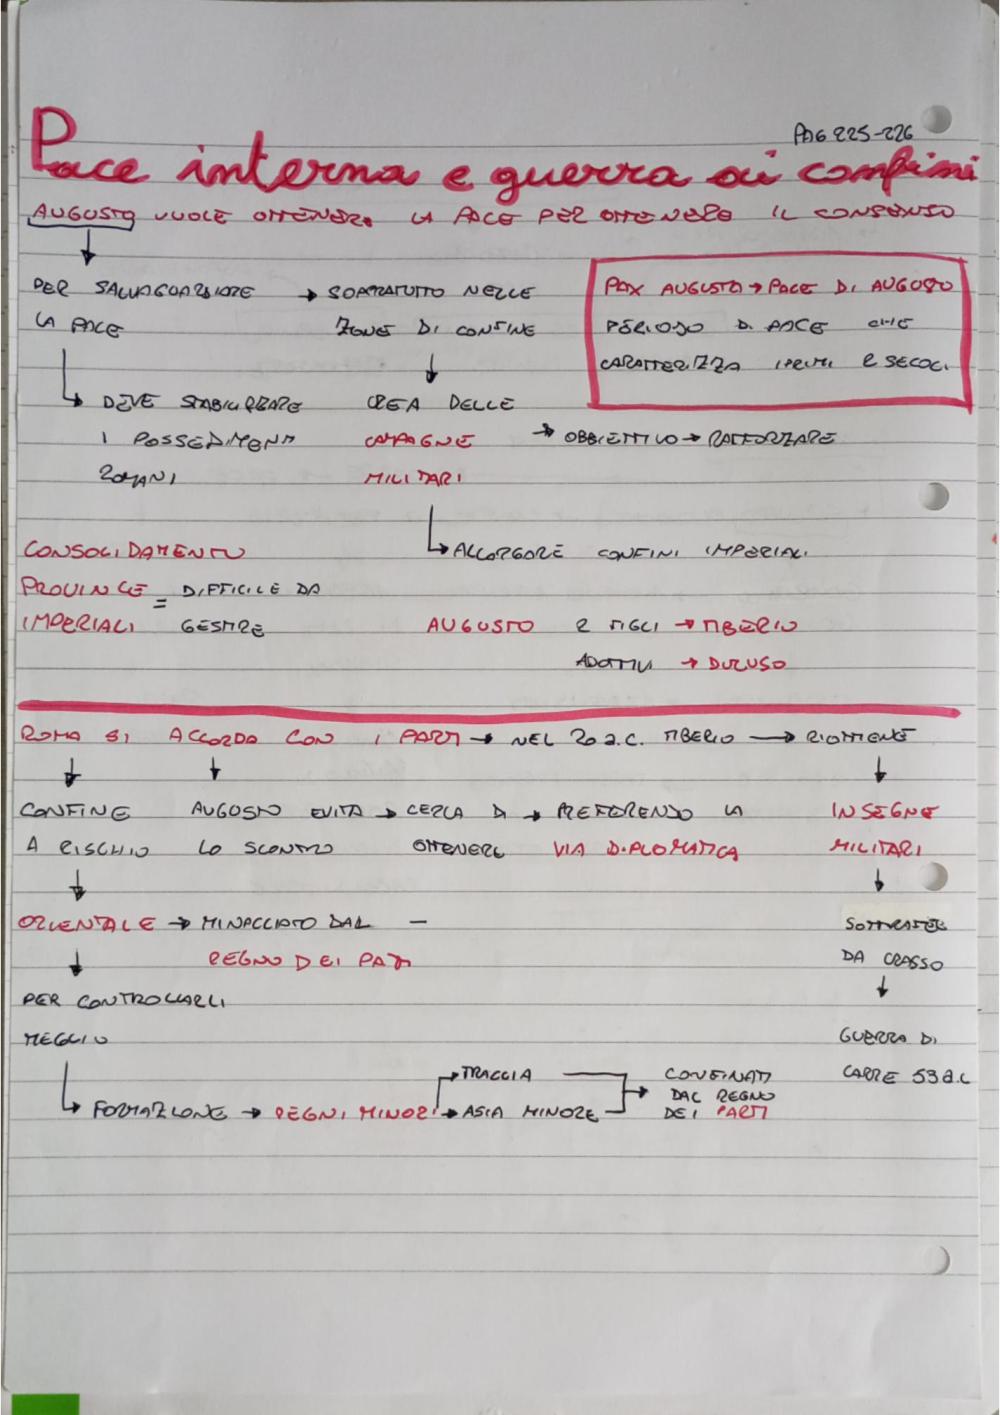 PAG 225-226
Pace interna e guerra ai confini
AUGUSTO VUOLE OTTENERE LA PACE PER OTTENERE IL CONSENSO
PER SALVAGUARDARE → SOPRATUTTO NELLE
LA PACE ZONE DI CONFINE
PAX AUGUSTA → PACE DI AUGUSTO
PERIODO DI PACE CHE
CARATTERIZZA I PRIMI 2 SECOLI
DEVE STABILIZZARE CREA DELLE
I POSSEDIMENTI CAMPAGNE → OBBIETTIVO → RAFFORZARE
ROMANI MILITARI
CONSOLIDAMENTO ALLARGARE CONFINI IMPERIALI
PROVINCE = DIFFICILE DA
IMPERIALI GESTIRE AUGUSTO 2 FIGLI → TIBERIO
ADOTTIVI → DURUSO
ROMA SI ACCORDA CON I PARTI → NEL 20 a.C. TIBERIO → RIOTTIENE
CONFINE AUGUSTO EVITA → CERCA DI → PREFERENDO LA INSEGNE
A RISCHIO LO SCONTRO OTTENERE VIA DIPLOMATICA MILITARI
ORIENTALE → MINACCIATO DAL – SOTTRATTE
REGNO DEI PARTI DA CRASSO
PER CONTROLLARLI
MEGLIO GUERRA DI
TRACCIA CONFINATI CARRE 53 a.C
DAL REGNO
FORMAZIONE → REGNI MINORI → ASIA MINORE DEI PARTI